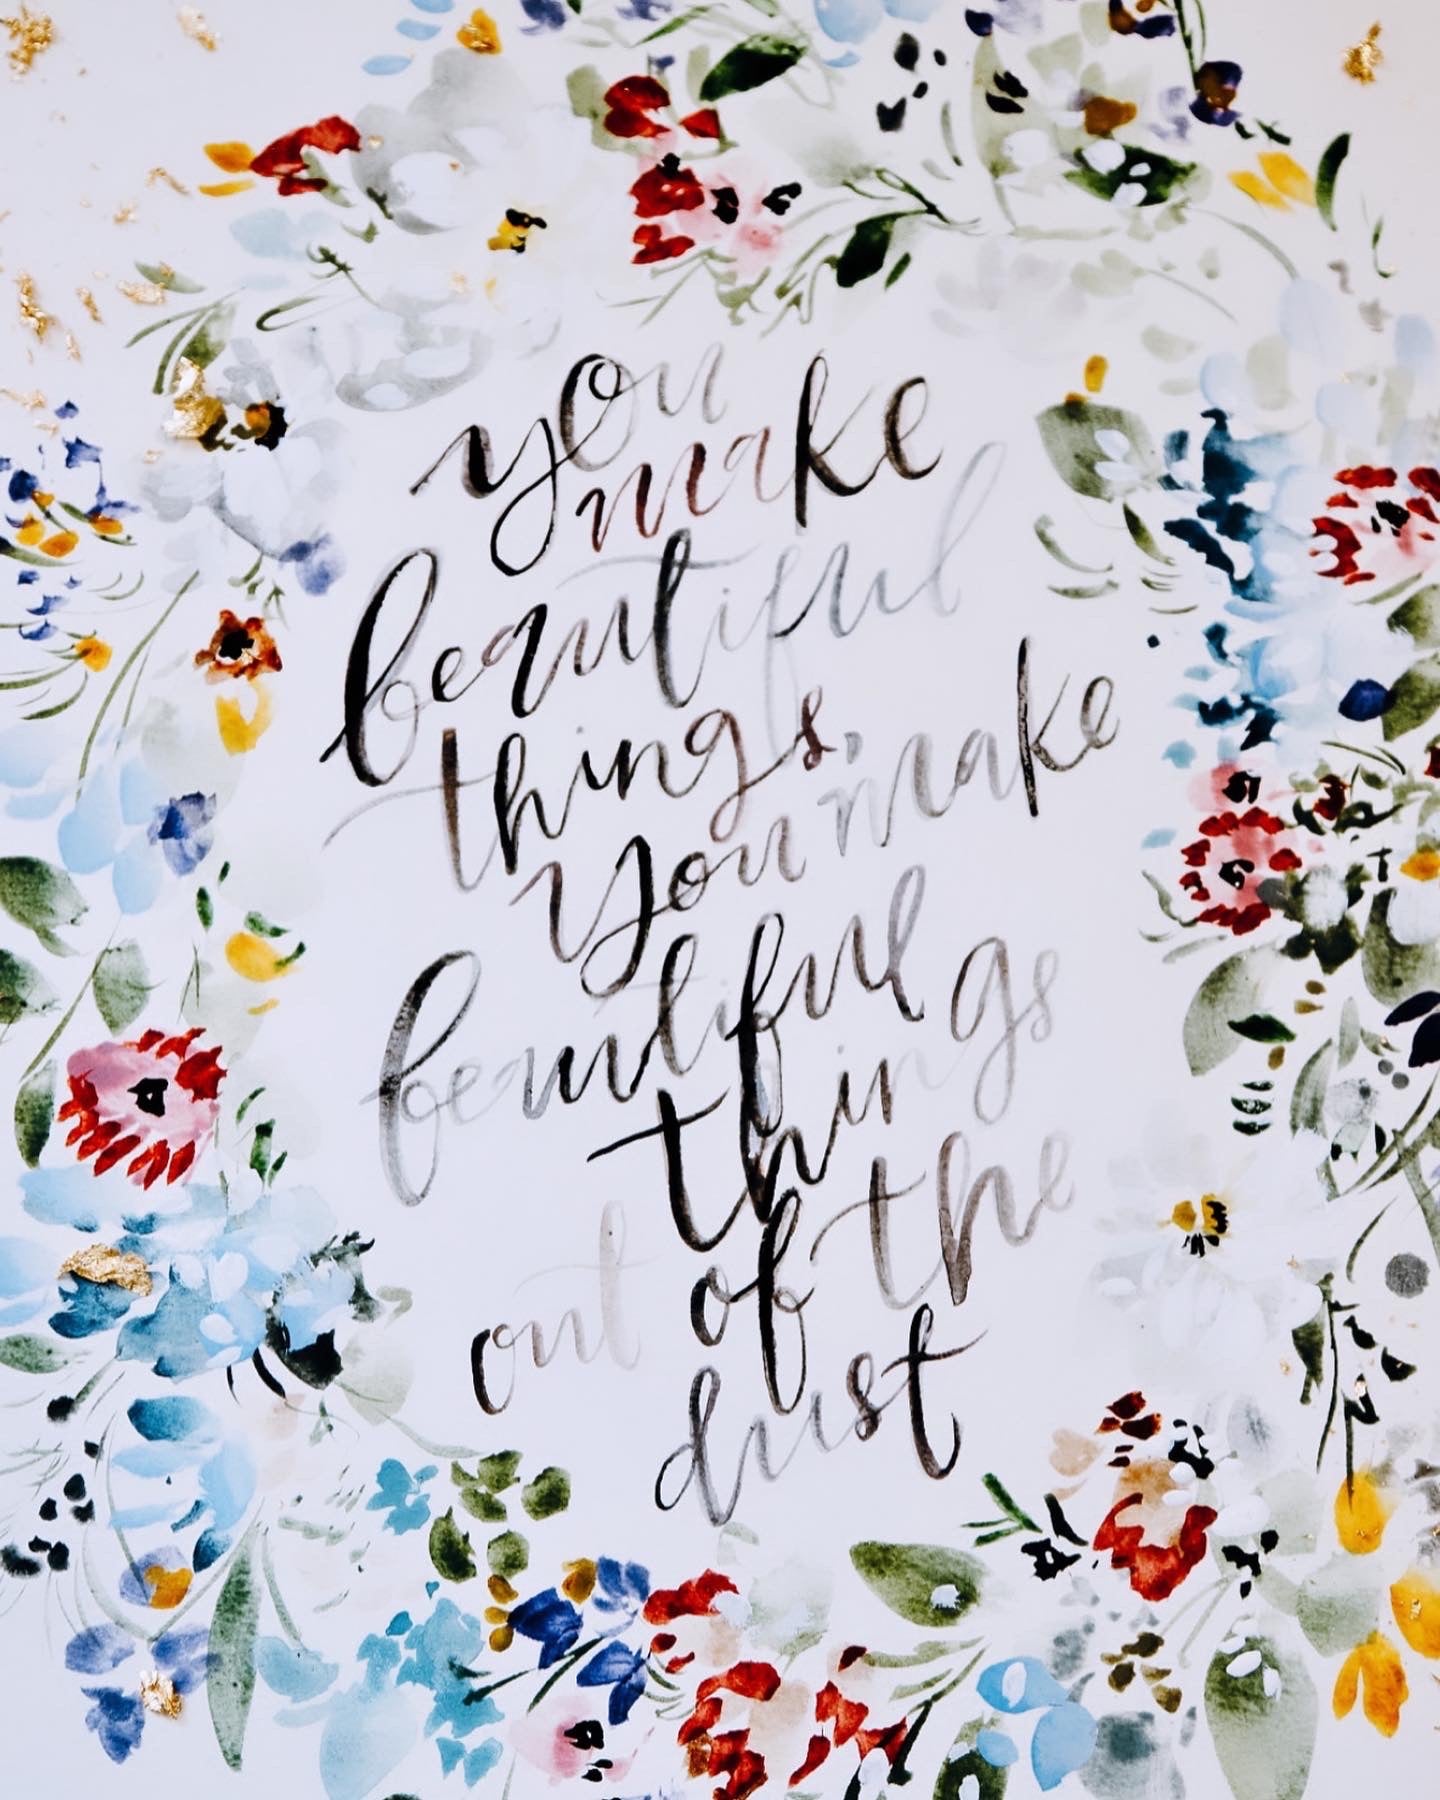 you
make
beautiful
things.
you make
beautiful
things
out of the
dust